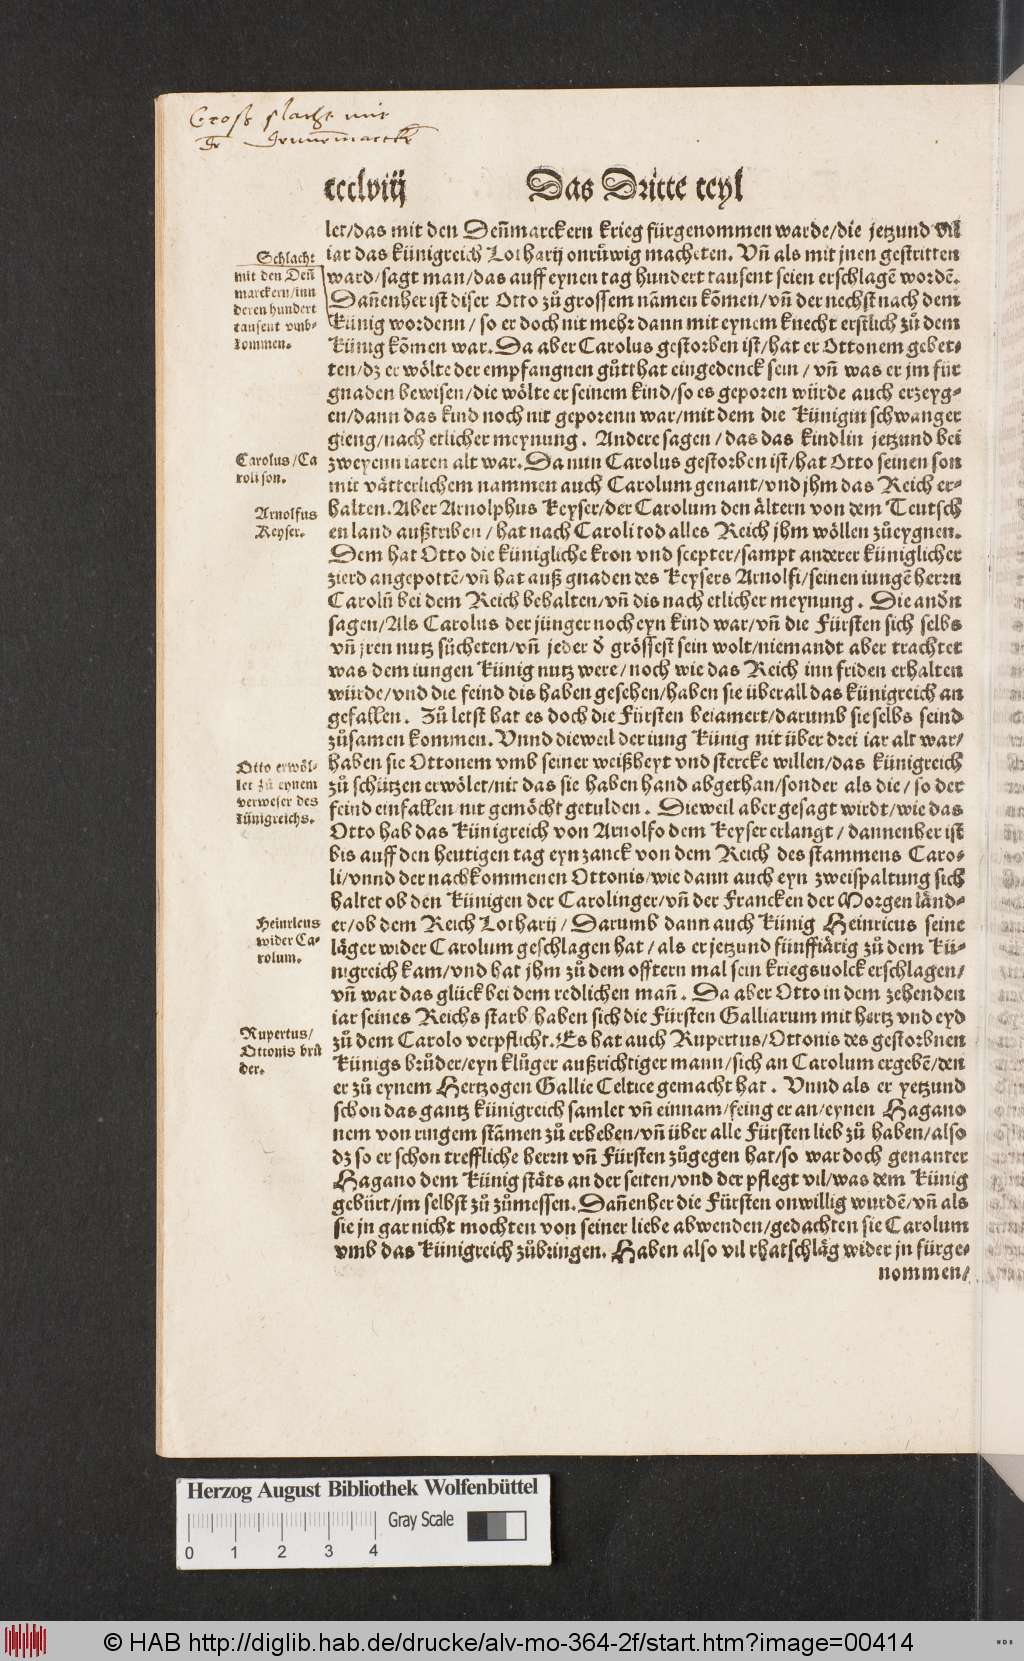 Groß slacht mit
dē dennemarcker
ccclviij Das Dritte teyl
let/das mit den Deñmarckern krieg fürgenommen warde/die jetzund vil
iar das künigreich Lotharij onrüwig macheten. Vñ als mit jnen gestritten
ward/sagt man/das auff eynen tag hundert tausent seien erschlagē wordē.
Dañenher ist diser Otto zů grossem nāmen kōmen/vñ der nechst nach dem
Künig wordenn/so er doch nit mehr dann mit eynem knecht erstlich zů dem
Künig kōmen war. Da aber Carolus gestorben ist/hat er Ottonem gebet-
ten/dz er wölte der empfangnen gůtthat eingedenck sein/vñ was er jm für
gnaden bewisen/die wölte er seinem kind/so es geporen würde auch erzeyg-
en/dann das kind noch nit geporenn war/mit dem die Künigin schwanger
gieng/nach etlicher meynung. Andere sagen/das das kindlin jetzund bei
zweyenn iaren alt war. Da nun Carolus gestorben ist/hat Otto seinen son
mit vätterlichem nammen auch Carolum genant/vnd jhm das Reich er-
halten. Aber Arnolphus Keyser/der Carolum den ältern von dem Teutsch
en land außtriben/hat nach Caroli tod alles Reich jhm wöllen zůeygnen.
Dem hat Otto die künigliche kron vnd scepter/sampt anderer küniglicher
zierd angepottē/vñ hat auß gnaden des Keysers Arnolfi/seinen iungē herrn
Carolū bei dem Reich behalten/vñ dis nach etlicher meynung. Die andn
sagen/Als Carolus der jünger noch eyn kind war/vñ die Fürsten sich selbs
vñ jren nutz sůcheten/vñ jeder d̕ gröſſest sein wolt/niemandt aber trachtet
was dem iungen Künig nutz were/noch wie das Reich inn friden erhalten
würde/vnd die feind dis haben gesehen/haben sie überall das künigreich an
gefallen. Zů letst hat es doch die Fürsten beiamert/darumb sie selbs seind
zůsamen kommen. Vnnd dieweil der iung Künig nit über drei iar alt war/
haben sie Ottonem vmb seiner weißheyt vnd stercke willen/das künigreich
zů schützen erwölet/nit das sie haben hand abgethan/sonder als die/so der
feind einfallen nit gemöcht getulden. Dieweil aber gesagt wirdt/wie das
Otto hab das Künigreich von Arnolfo dem Keyser erlangt/dannenher ist
bis auff den heutigen tag eyn zanck von dem Reich des stammens Caro-
li/vnnd der nachkommenen Ottonis/wie dann auch eyn zweispaltung sich
haltet ob den Künigen der Carolinger/vñ der Francken der Morgen länd-
er/ob dem Reich Lotharij/Darumb dann auch Künig Heinricus seine
läger wider Carolum geschlagen hat/als er jetzund fünffiärig zů dem Kü-
nigreich kam/vnd hat jhm zů dem offtern mal sein kriegsuolck erschlagen/
vñ war das glück bei dem redlichen mañ. Da aber Otto in dem zehenden
iar seines Reichs starb/haben sich die Fürsten Galliarum mit hertz vnd eyd
zů dem Carolo verpflicht. Es hat auch Rupertus/Ottonis des gestorbnen
Künigs brůder/eyn klůger außrichtiger mann/sich an Carolum ergebē/den
er zů eynem Hertzogen Gallie Celtice gemacht hat. Vnnd als er yetzund
schon das gantz künigreich samlet vñ einnam/feing er an/eynen Hagano
nem von ringem stāmen zů erheben/vñ über alle Fürsten lieb zů haben/also
dz so er schon treffliche herrn vñ Fürsten zůgegen hat/so war doch genanter
Hagano dem Künig stäts an der seiten/vnd der pflegt vil/was dem Künig
gebürt/jm selbst zů zůmessen. Dañenher die Fürsten onwillig wurdē/vñ als
sie jn gar nicht mochten von seiner liebe abwenden/gedachten sie Carolum
vmb das Künigreich zůbringen. Haben also vil rhatschläg wider jn fürge-
nommen/
Schlacht
mit den Deñ
marckern/inn
deren hundert
tausent vmb-
kommen.
Carolus/Ca
roli son.
Arnolfus
Keyser.
Otto erwöl-
let zů eynem
verweser des
künigreichs.
Heinricus
wider Ca-
rolum.
Rupertus/
Ottonis brů
der.
Herzog August Bibliothek Wolfenbüttel
0 1 2 3 4
Gray Scale
© HAB http://diglib.hab.de/drucke/alv-mo-364-2f/start.htm?image=00414